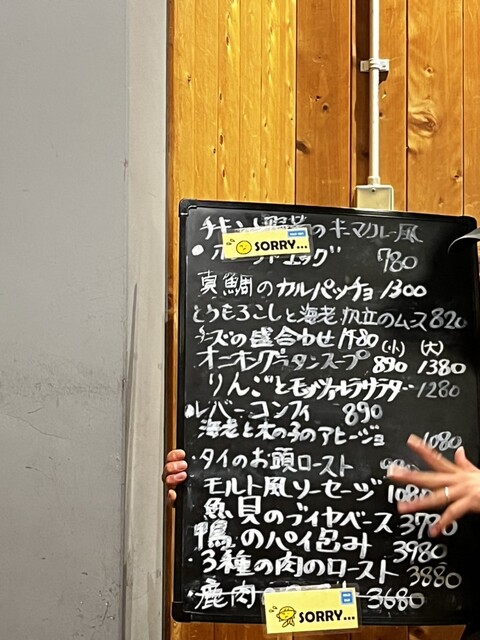 チキンと野菜のキーマカレー風
SORRY...
780
真鯛のカルパッチョ 1300
とうもろこしと海老、帆立のムース 820
チーズの盛合わせ 1480 (小) (大)
オニオングラタンスープ 890 1380
りんごとモッツァレラサラダー 1280
レバーコンフィ 890
海老と木の子のアヒージョ 1080
・タイのお頭ロースト
モルト風ソーセージ 1080
魚貝のブイヤベース 3780
鴨のパイ包み 3980
・3種の肉のロースト 3880
・鹿肉 3680
SORRY...